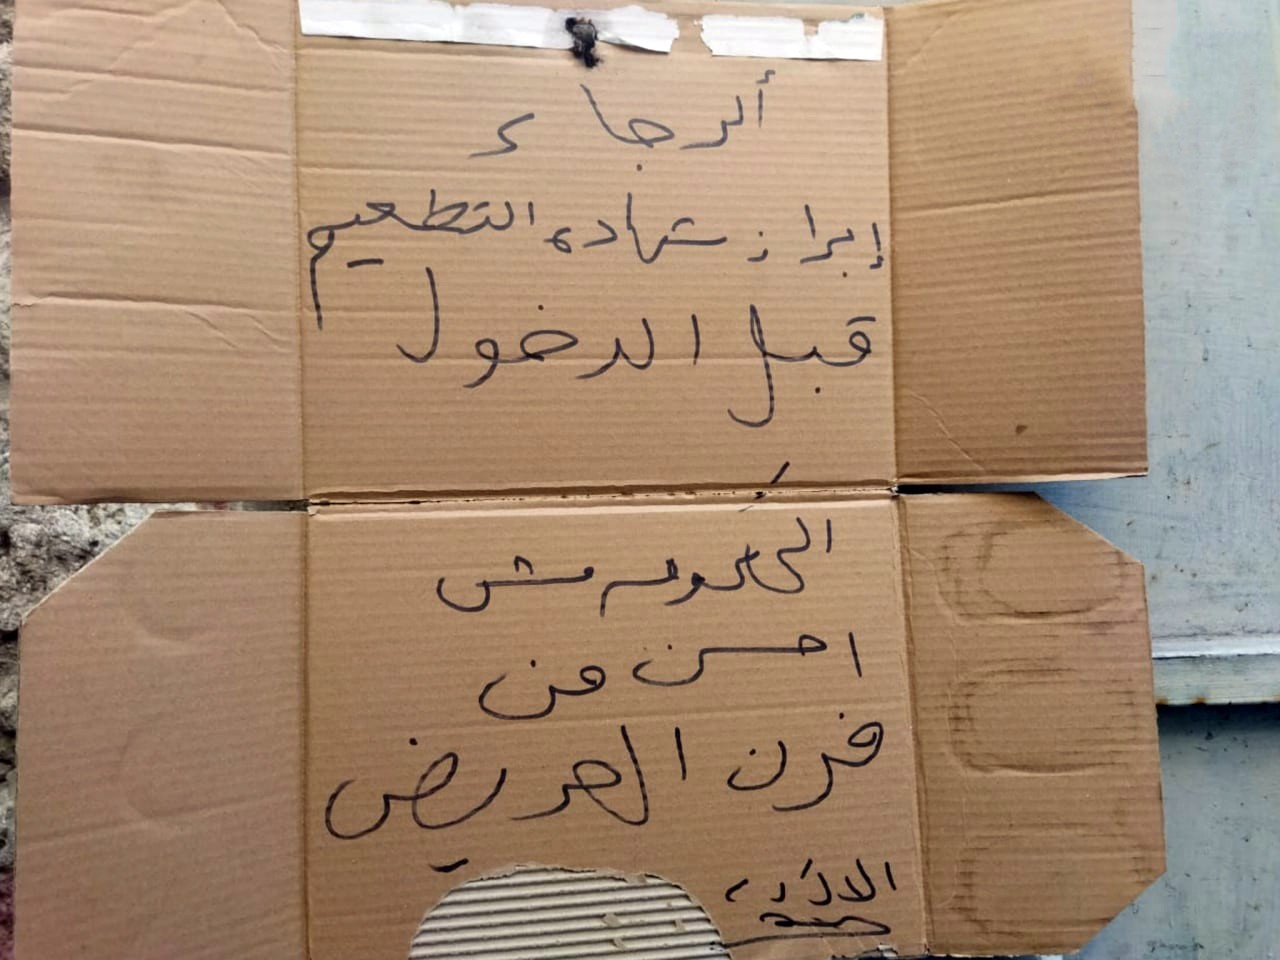 ألرجاء
إبراز شهاده التطعيم
قبل الدخول
الحكومه مش
احسن من
فرن العريض
الادارة